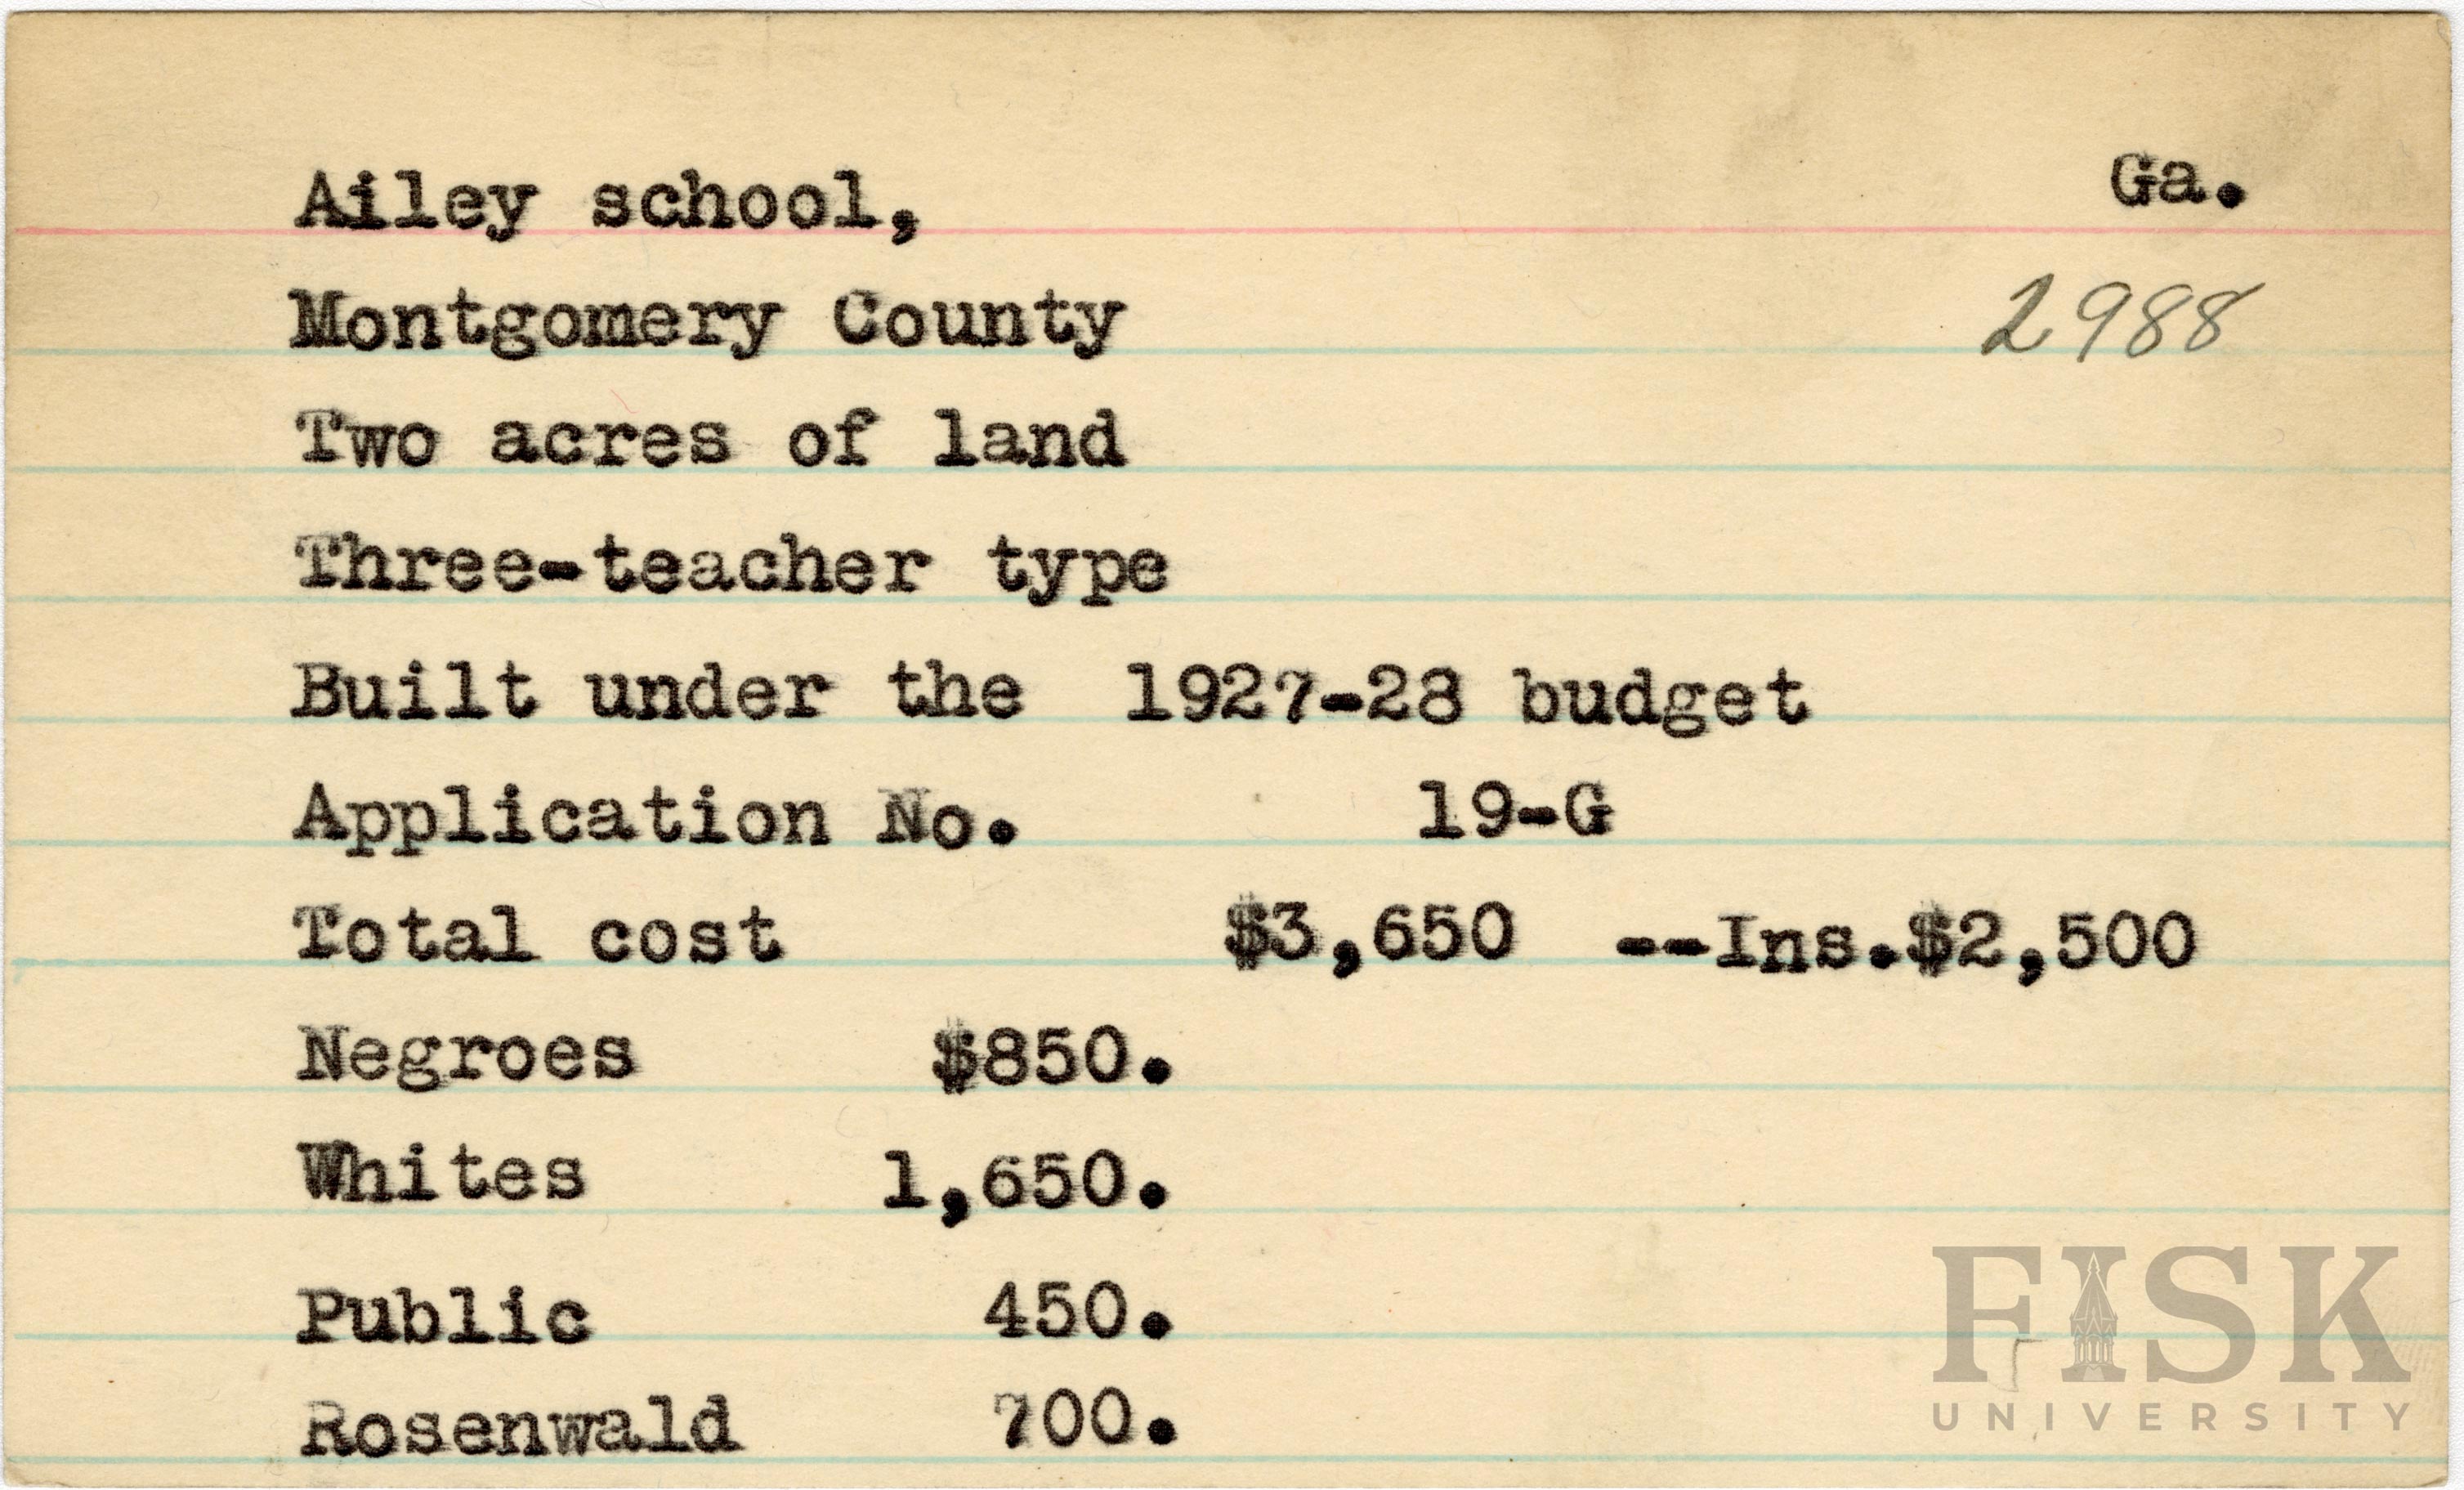 Ailey school, Ga.
Montgomery County 2988
Two acres of land
Three-teacher type
Built under the 1927-28 budget
Application No. 19-G
Total cost $3,650 --Ins.$2,500
Negroes $850.
Whites 1,650.
Public 450.
Rosenwald 700.
FISK
UNIVERSITY